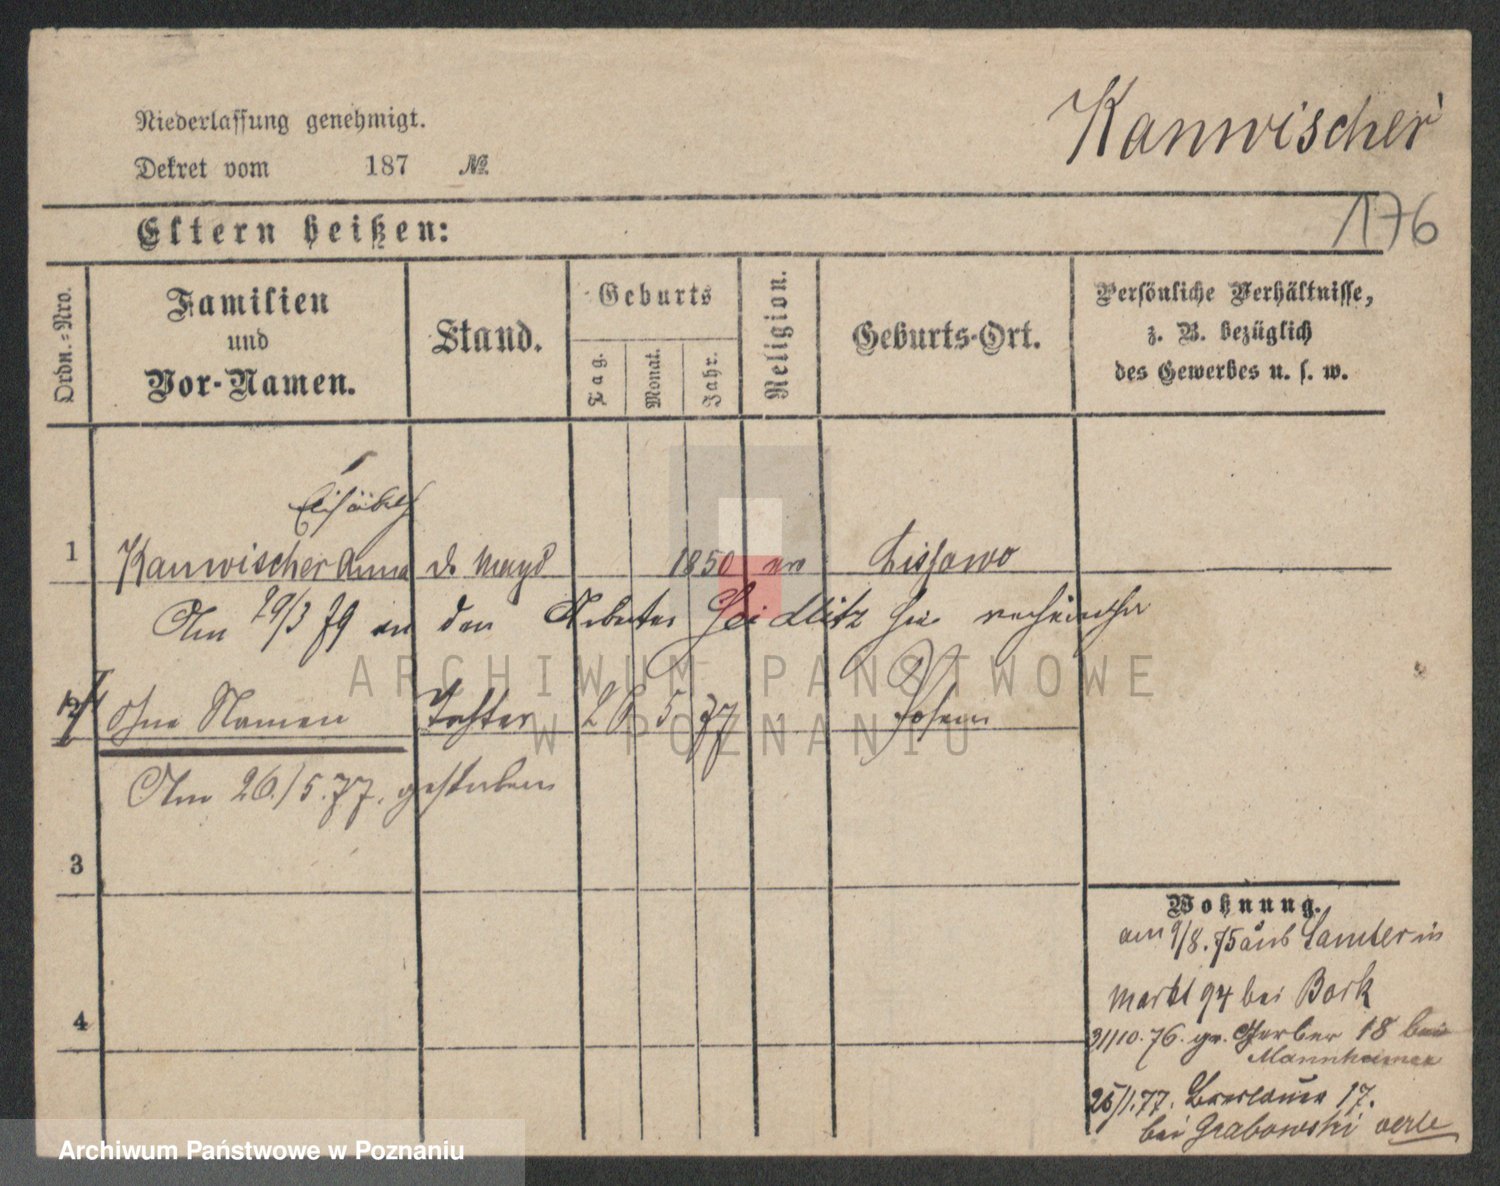 Kanwischer
Niederlassung genehmigt.
Dekret vom 187 №
176
Eltern heißen:
Ordn.=Nro.
Familien
und
Vor-Namen.
Stand.
Geburts
Tag.
Monat.
Jahr.
Religion.
Geburts-Ort.
Persönliche Verhältnisse,
z. B. bezüglich
des Gewerbes u. s. w.
1 Kanwischer Anna Magd 1850
Am 29/3 79 an den Arbeiter Seidlitz
ohne Namen Tochter 26 5 77 Posen
Am 26./5.77. gestorben
3
4
Wohnung.
am 9/8.75 aus Samter in
Markt 94 bei Bork
31/10.76. gr. Gerber 18 bei
Mannheimer
25/1.77. Breslauer 17.
bei Grabowski
ARCHIWUM PAŃSTWOWE
W POZNANIU
Archiwum Państwowe w Poznaniu